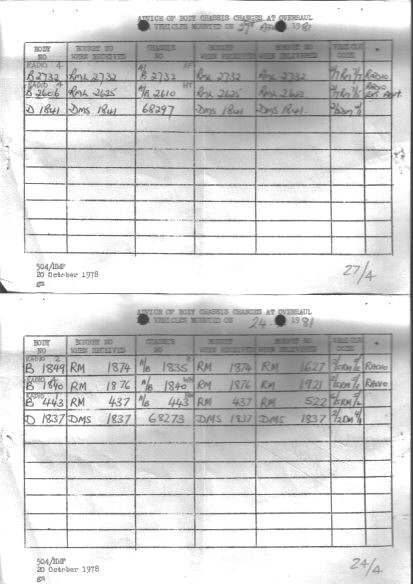 ADVICE OF BODY CHASSIS CHANGES AT OVERHAUL
VEHICLES MOUNTED ON 27th 1981
BODY NO BONNET NO WHEN RECEIVED CHASSIS NO BONNET WHEN RECEIVED BONNET NO WHEN DELIVERED VEHICLE CODE *
RADIO 4
B 2732 RML 2732 A/ B 2732 RML 2732 RML 2732 RADIO
RADIO 4 HT
B 2606 RML 2625 2610 RML 2625 RML
D 1841 DMS 1841 68297 DMS 1841 DMS 1841
504/HMP
20 October 1978
gm
27/4
ADVICE OF BODY CHASSIS CHANGES AT OVERHAUL
VEHICLES MOUNTED ON 24 1981
BODY NO BONNET NO WHEN RECEIVED CHASSIS NO BONNET WHEN RECEIVED BONNET NO WHEN DELIVERED VEHICLE CODE *
RADIO 2
B 1849 RM 1874 A/B 1835 RM 1874 RM 1627 RADIO
B 1840 RM 1876 A/B 1840 RM 1876 RM 1921 RADIO
RADIO
B 443 RM 437 A/B 443 RM 437 RM 522
D 1837 DMS 1837 68273 DMS 1837 DMS 1837
504/HMP
20 October 1978
gm
24/4